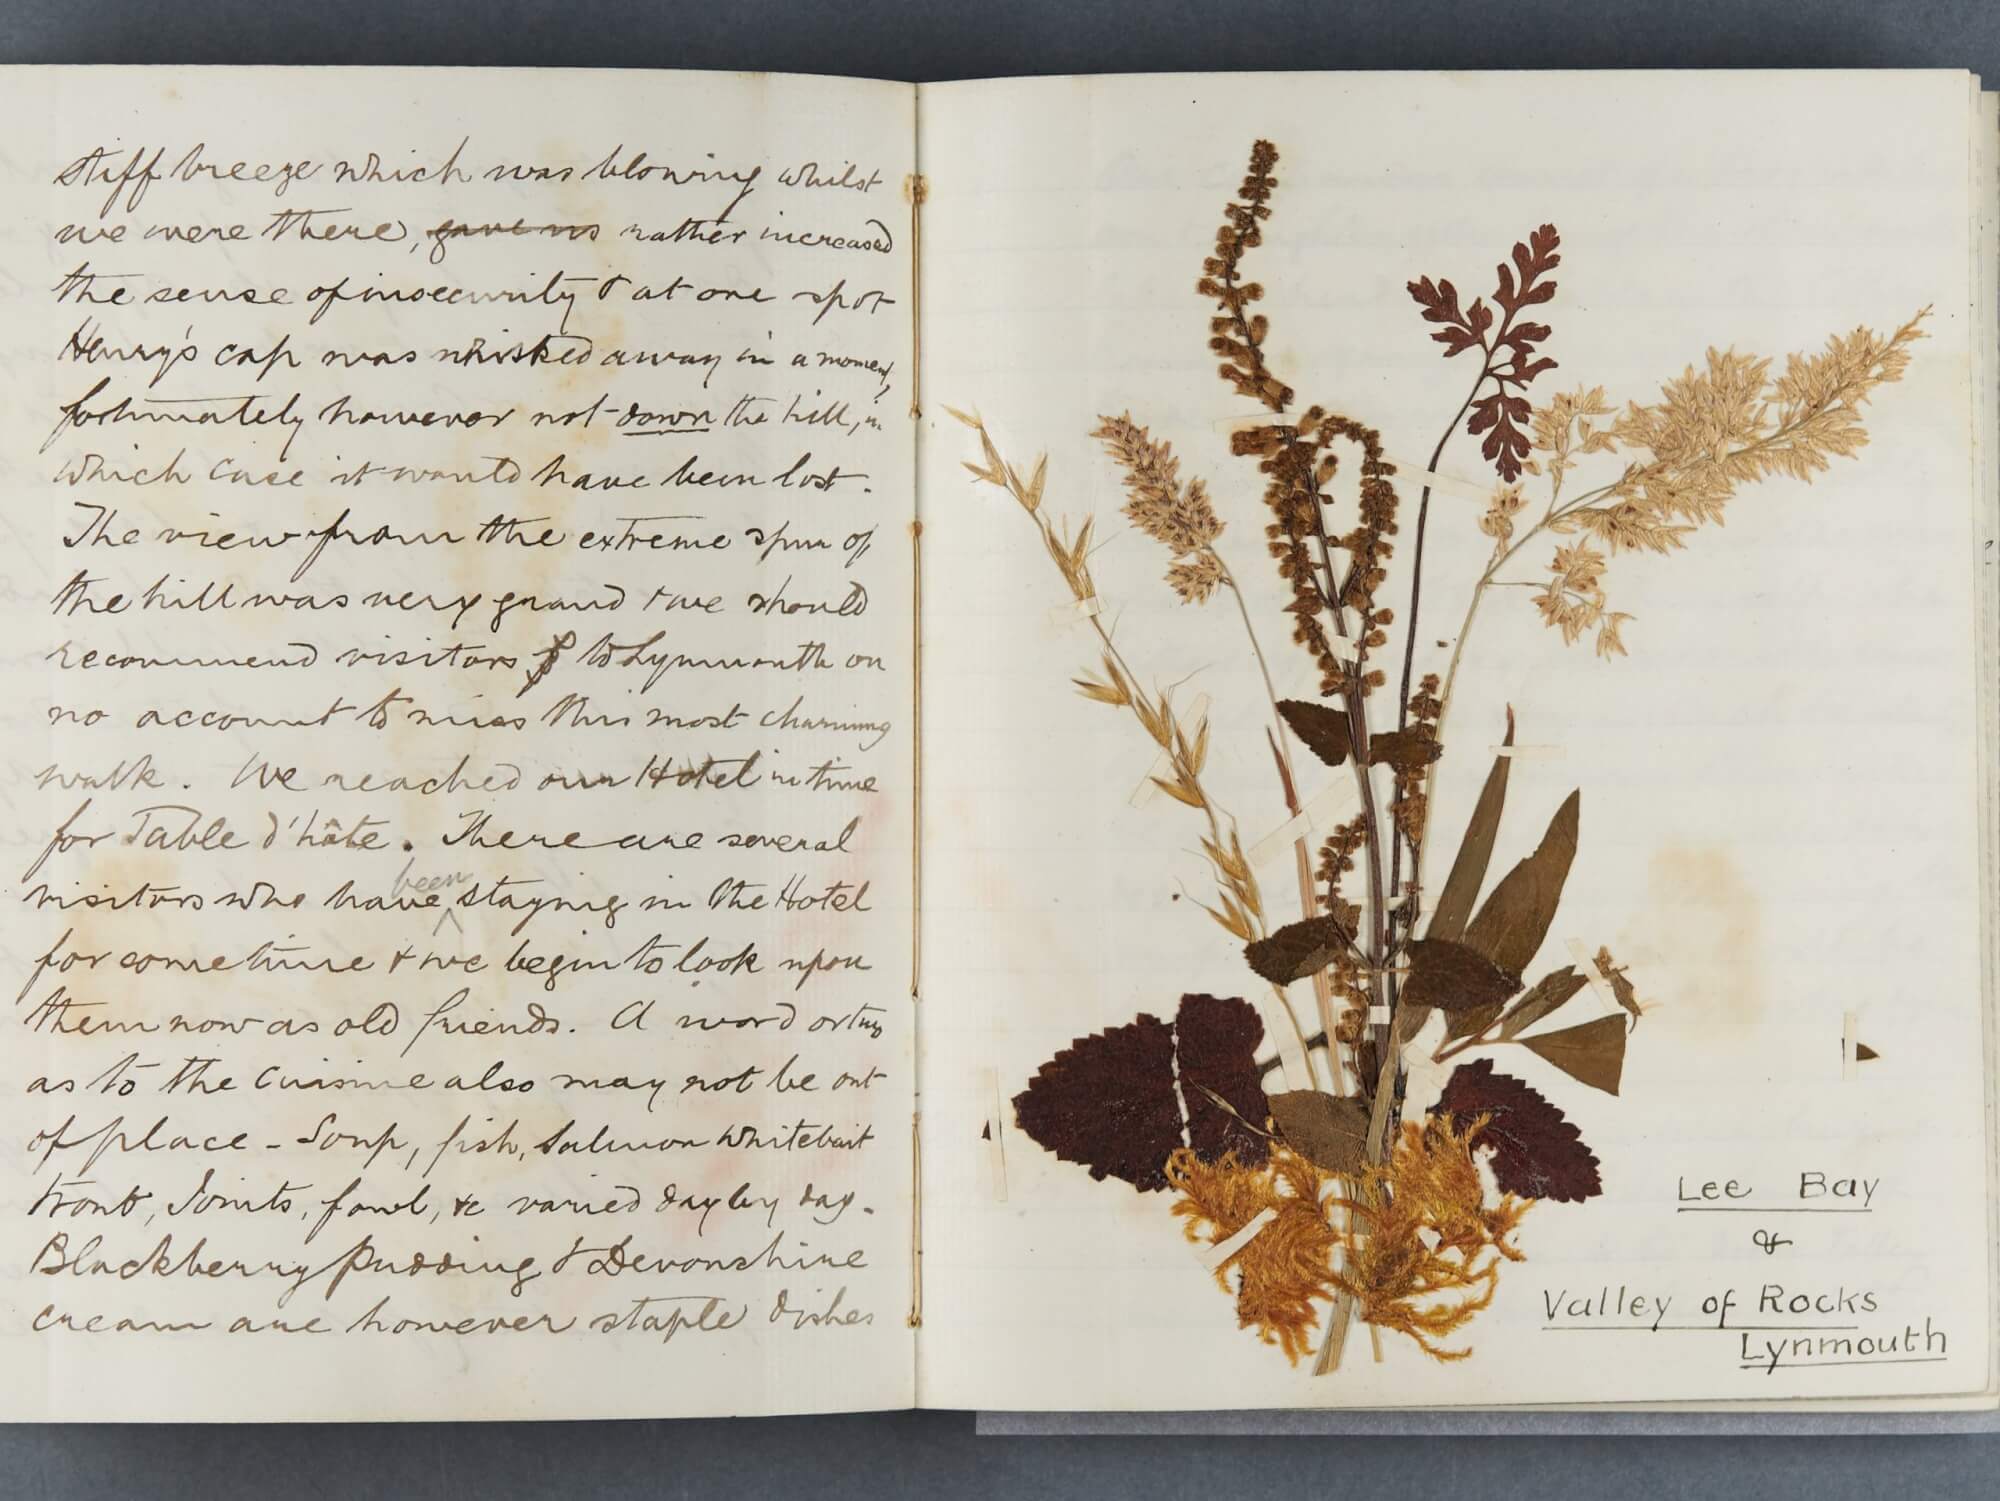 stiff breeze which was blowing whilst
we were there, gave us rather increased
the sense of insecurity & at one spot
Henry's cap was whisked away in a moment,
fortunately however not down the hill, in
which case it would have been lost.
The view from the extreme spur of
the hill was very grand & we should
recommend visitors to Lynmouth on
no account to miss this most charming
walk. We reached our Hotel in time
for Table d'hôte. There are several
been
visitors who have ^ staying in the Hotel
for some time & we begin to look upon
them now as old friends. A word or two
as to the cuisine also may not be out
of place - Soup, fish, Salmon Whitebait
trout, Joints, fowl, &c varied day by day.
Blackberry pudding & Devonshire
cream are however staple dishes
Lee Bay
&
Valley of Rocks
Lynmouth